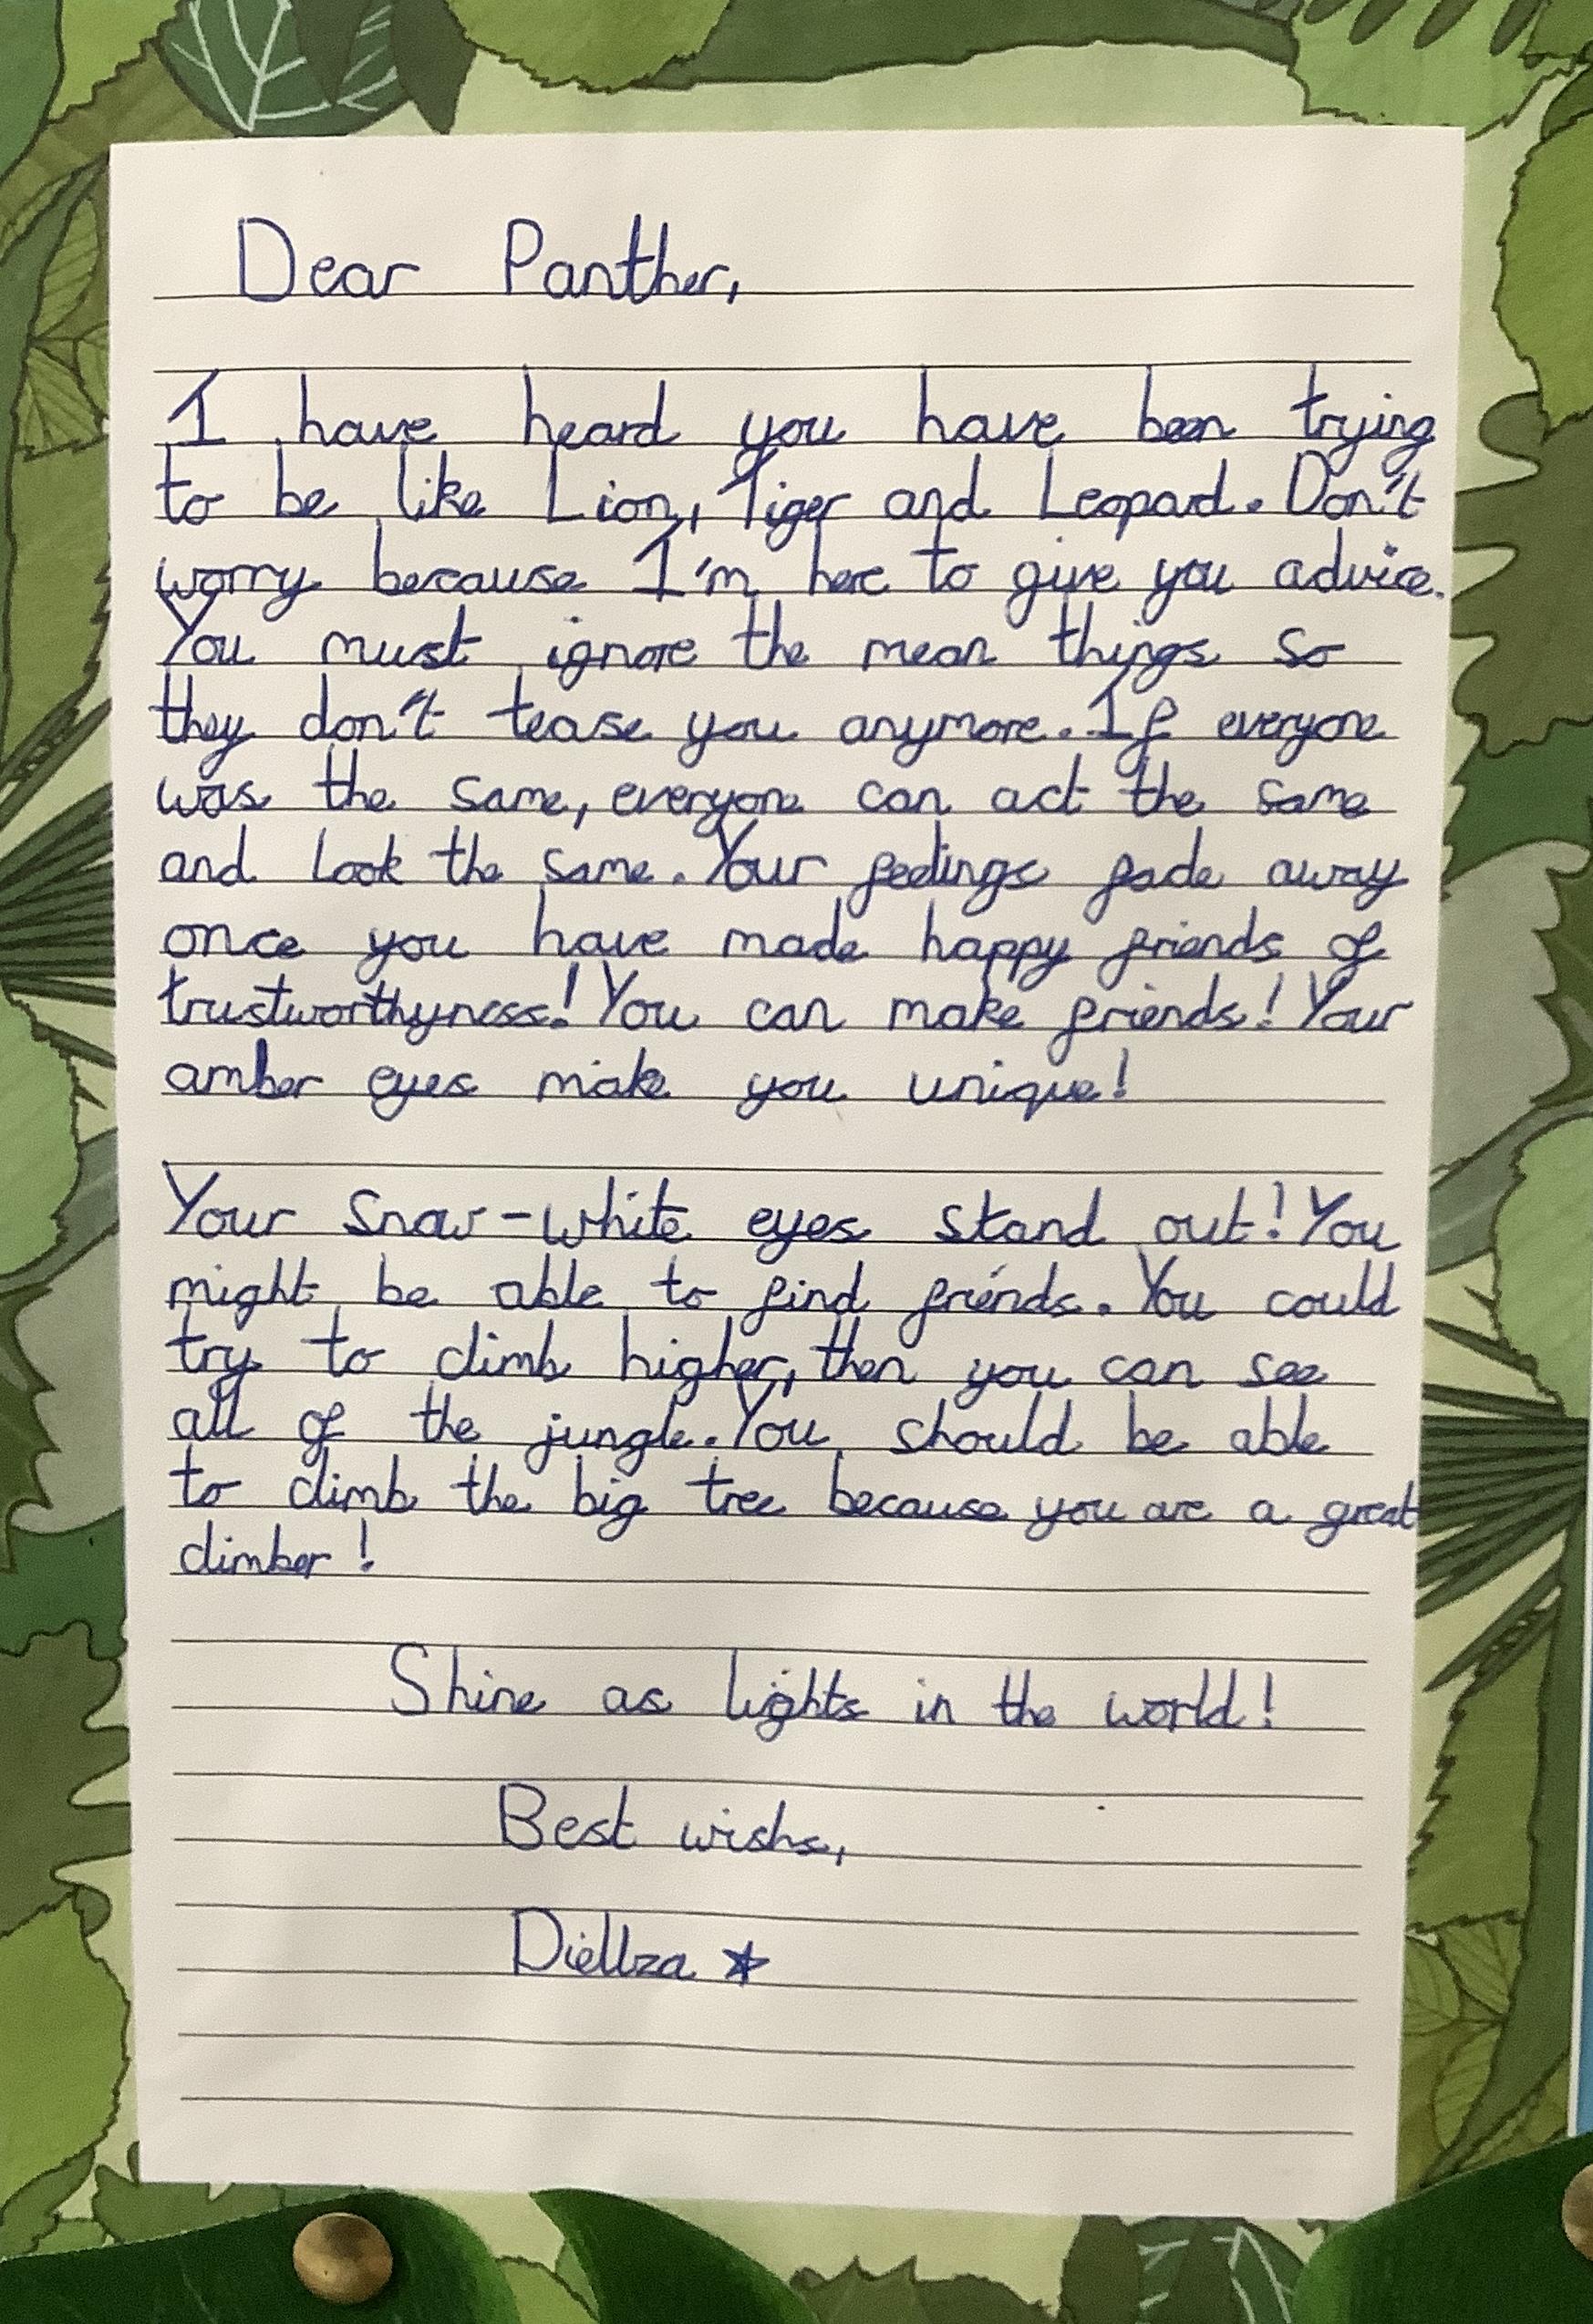 Dear Panther,
I have heard you have been trying
to be like Lion, Tiger and Leopard. Don't
worry because I'm here to give you advice.
You must ignore the mean things so
they don't tease you anymore. If everyone
was the same, everyone can act the same
and look the same. Your feelings fade away
once you have made happy friends of
trustworthyness! You can make friends! Your
amber eyes make you unique!
Your snow-white eyes stand out! You
might be able to find friends. You could
try to climb higher, then you can see
all of the jungle. You should be able
to climb the big tree because you are a great
climber!
Shine as lights in the world!
Best wishs,
Diellza ★